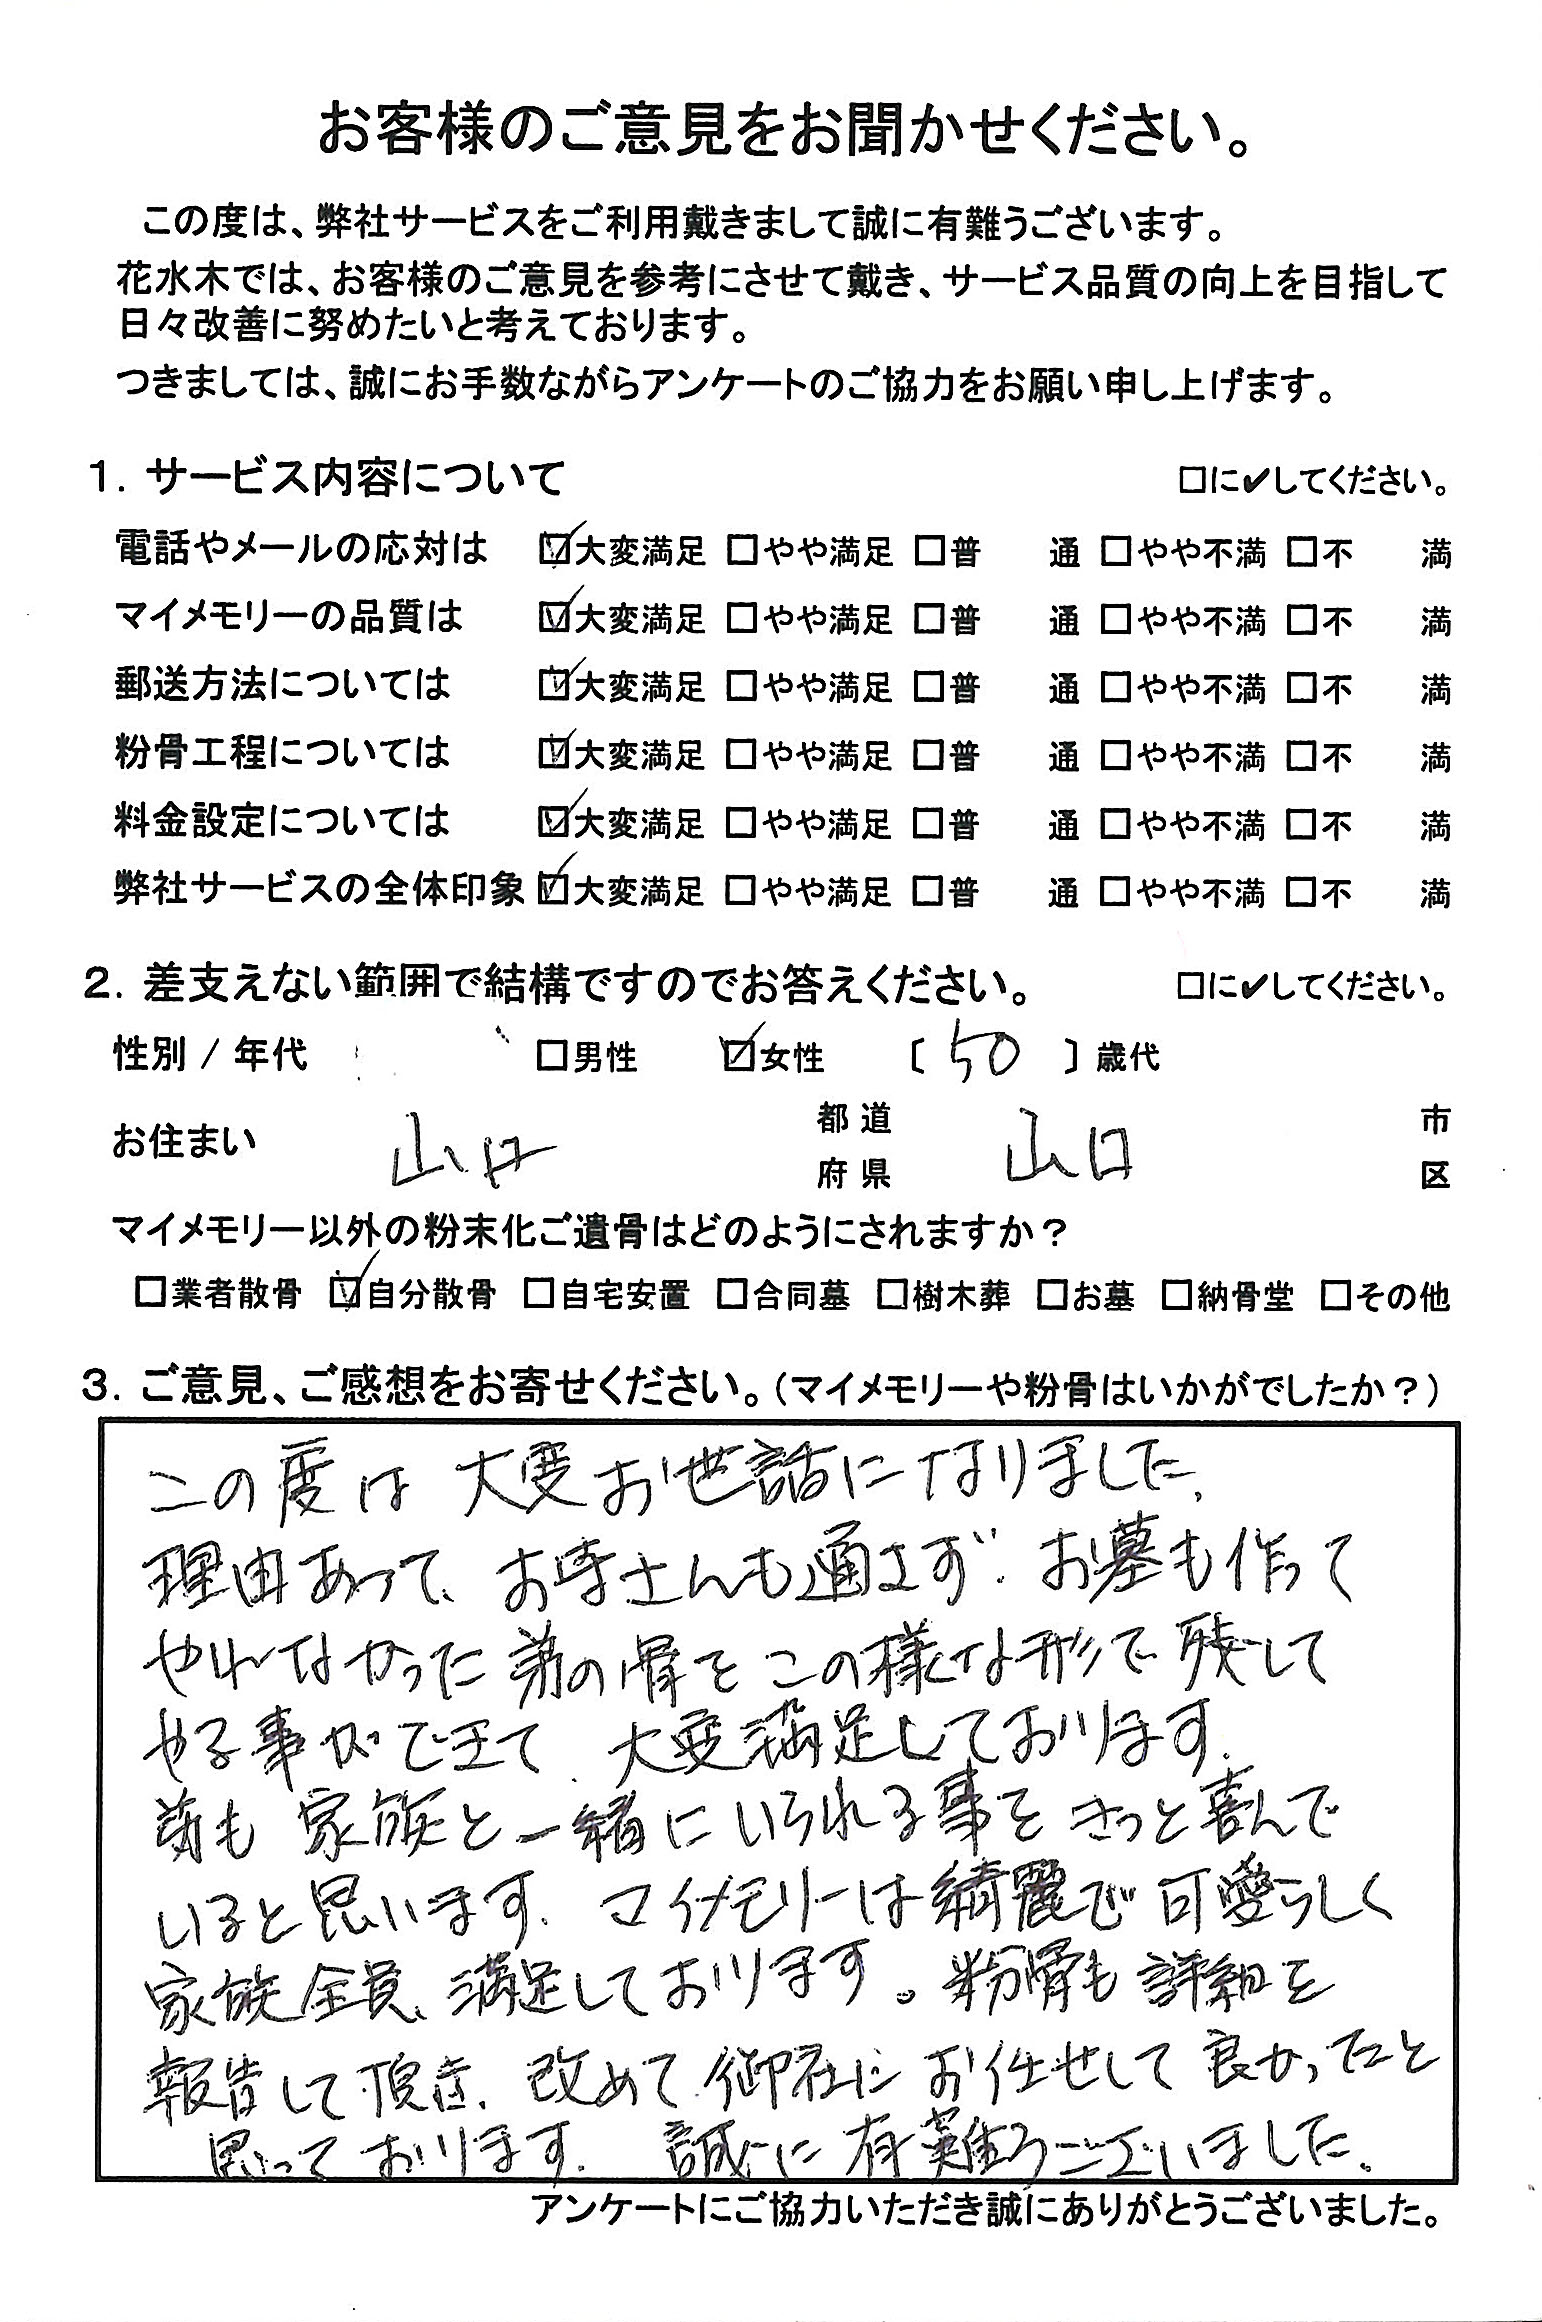 お客様のご意見をお聞かせください。
この度は、弊社サービスをご利用戴きまして誠に有難うございます。
花水木では、お客様のご意見を参考にさせて戴き、サービス品質の向上を目指して
日々改善に努めたいと考えております。
つきましては、誠にお手数ながらアンケートのご協力をお願い申し上げます。
1. サービス内容について □に✔してください。
電話やメールの応対は ☑大変満足 □やや満足 □普 通 □やや不満 □不 満
マイメモリーの品質は ☑大変満足 □やや満足 □普 通 □やや不満 □不 満
郵送方法については ☑大変満足 □やや満足 □普 通 □やや不満 □不 満
粉骨工程については ☑大変満足 □やや満足 □普 通 □やや不満 □不 満
料金設定については ☑大変満足 □やや満足 □普 通 □やや不満 □不 満
弊社サービスの全体印象 ☑大変満足 □やや満足 □普 通 □やや不満 □不 満
2. 差支えない範囲で結構ですのでお答えください。 □に✔してください。
性別 / 年代 □男性 ☑女性 〔 50 〕歳代
お住まい 山口 都道府県 山口 市区
マイメモリー以外の粉末化ご遺骨はどのようにされますか？
□業者散骨 ☑自分散骨 □自宅安置 □合同墓 □樹木葬 □お墓 □納骨堂 □その他
3. ご意見、ご感想をお寄せください。（マイメモリーや粉骨はいかがでしたか？）
この度は 大変お世話になりました、
理由あって、お寺さんも通さず、お墓も作って
やれなかった弟の骨をこの様な形で残して
やる事ができて、大変満足しております。
弟も 家族と一緒にいられる事を きっと喜んで
いると思います、マイメモリーは綺麗で可愛らしく
家族全員、満足しております。粉骨も詳細を
報告して頂き、改めて御社にお任せして良かったと
思っております。 誠に有難うございました。
アンケートにご協力いただき誠にありがとうございました。